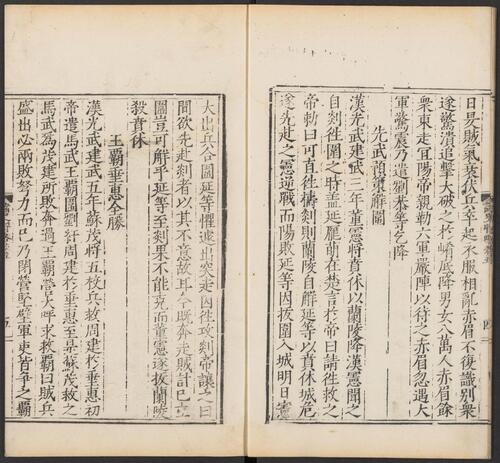 日昃賊氣衰伏兵卒起衣服相亂赤眉不復識別衆
遂驚潰追擊大破之於崤底降男女八萬人赤眉餘
衆東走宜陽帝親勒六軍嚴陣以待之赤眉忽遇大
軍驚震乃遣劉恭等乞降
光武預策解圍
漢光武建武三年董憲將賁休以蘭陵降憲聞之
自郯往圍之時蓋延龐萌在楚言於帝曰請往救之
帝勑曰可直往擣郯則蘭陵自解延等以賁休城危
遂先赴之憲逆戰而陽敗延等因拔圍入城明日憲
大出兵合圍延等懼遽出突走因往攻郯帝讓之曰
間欲先赴郯者以其不意故耳今既奔走賊計已立
圍豈可解乎延等至郯果不能克而董憲遂拔蘭陵
殺賁休
王霸垂惠合勝
漢光武建武五年蘇茂將五校兵救周建於垂惠初
帝遣馬武王霸圍劉紆周建於垂惠至是蘇茂救之
馬武為茂建所敗奔過王霸營大呼求救霸曰賊兵
盛出必兩敗努力而已乃閉營堅壁軍吏皆爭之霸